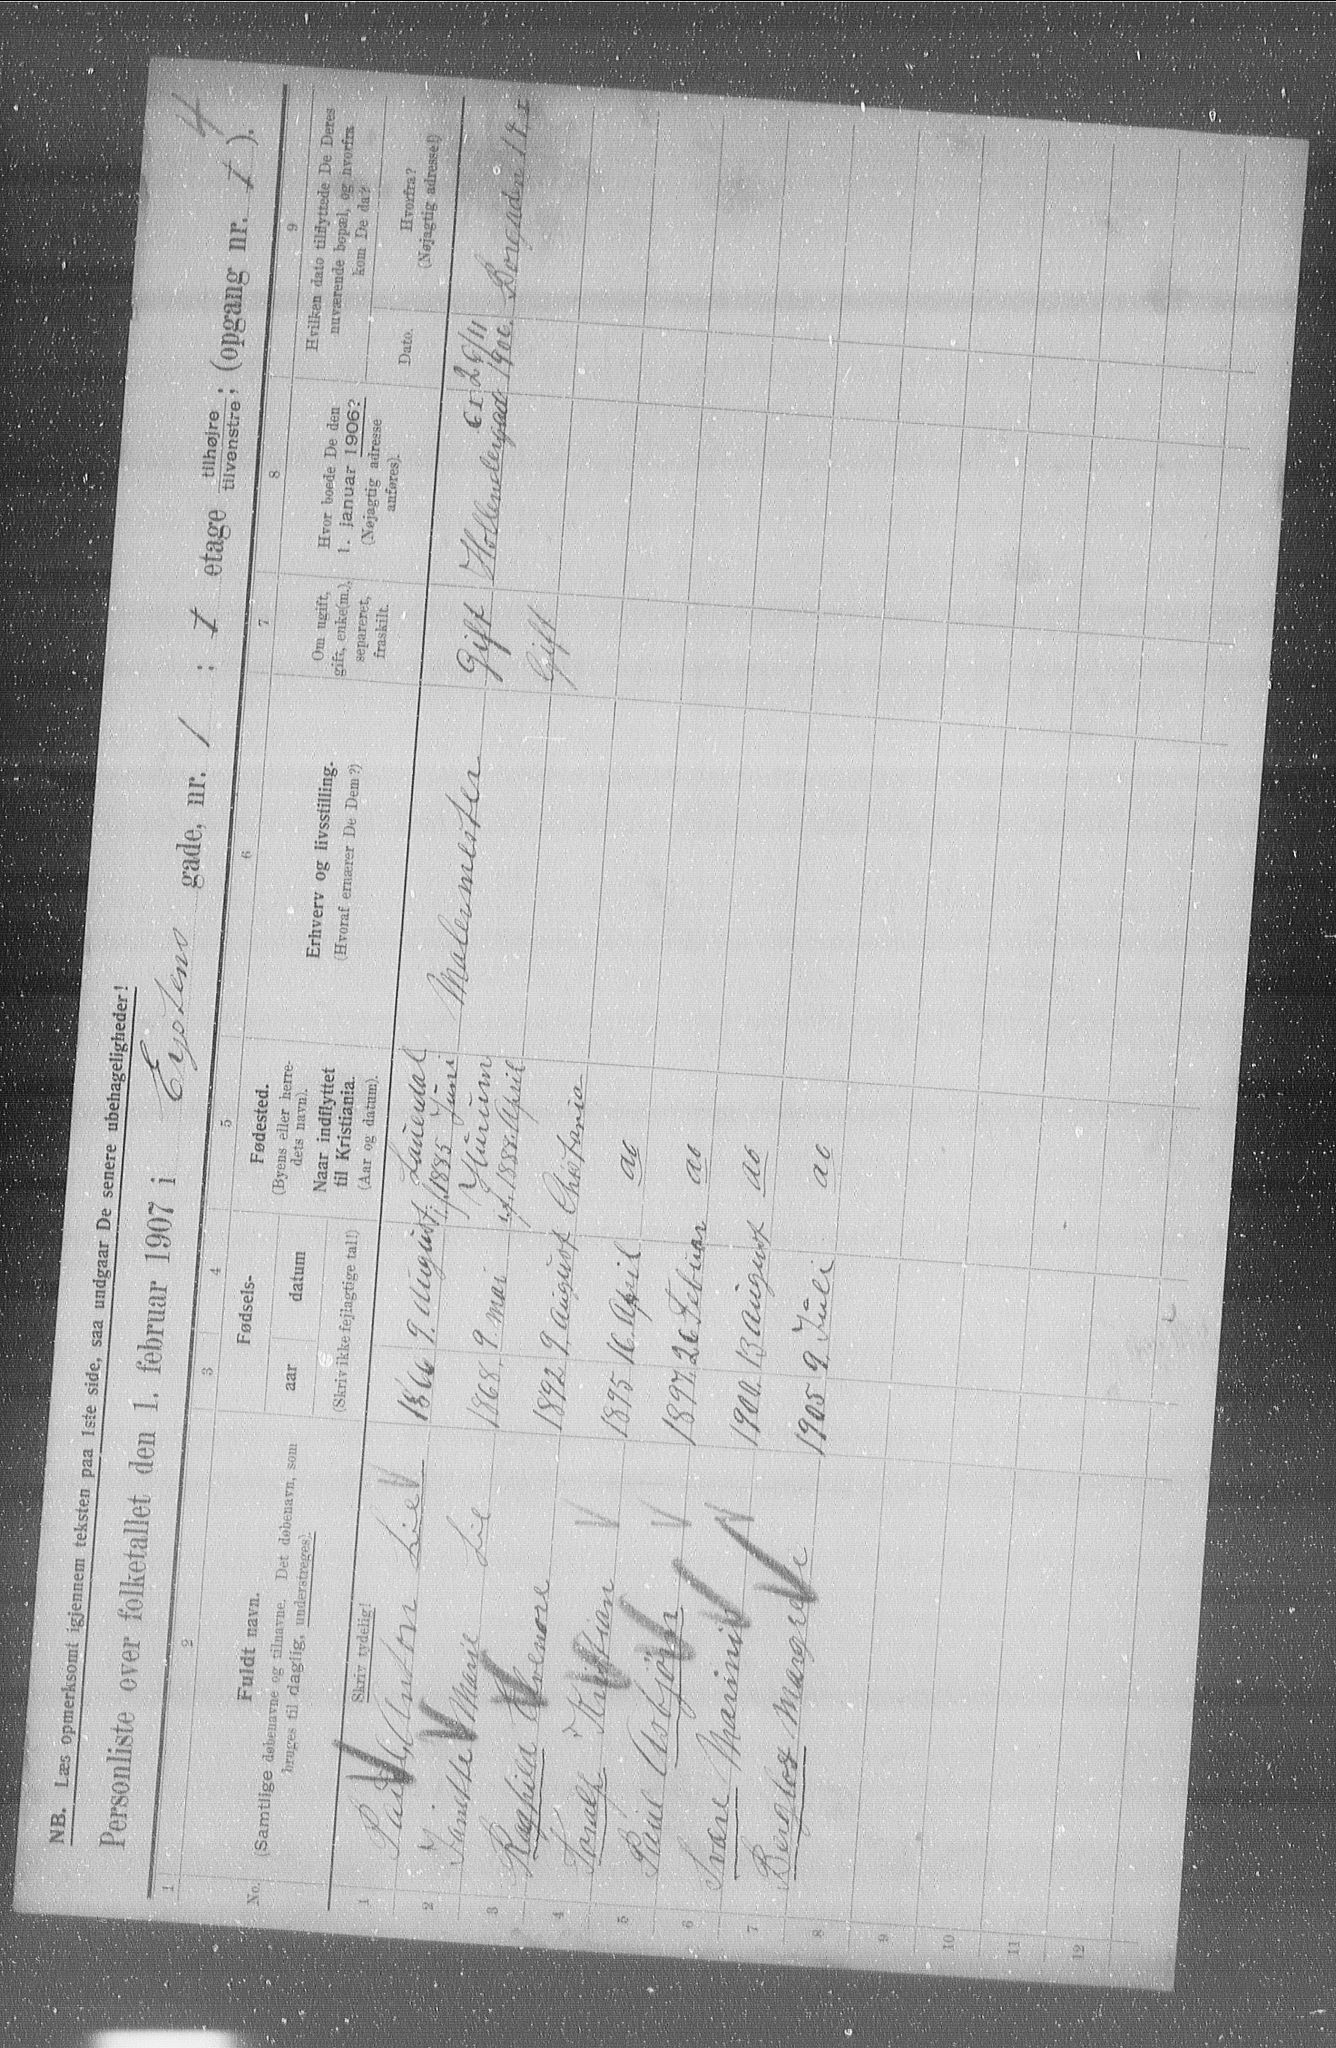 4
NB. Læs opmerksomt igjennem teksten paa 1ste side, saa undgaar De senere ubehageligheder!
Personliste over folketallet den 1. februar 1907 i Eystens gade, nr. 1 : I etage tilhøjre / tilvenstre ; (opgang nr. I ).
1 2 3 4 5 6 7 8 9
No.
Fuldt navn.
(Samtlige døbenavne og tilnavne. Det døbenavn, som
bruges til daglig, understreges).
Fødsels-
aar datum
Fødested.
(Byens eller herre-
dets navn).
Naar indflyttet
til Kristiania.
(Aar og datum).
Erhverv og livsstilling.
(Hvoraf ernærer De Dem?)
Om ugift,
gift, enke(m.),
separeret,
fraskilt.
Hvor boede De den
1. januar 1906?
(Nøjagtig adresse
anføres).
Hvilken dato tilflyttede De Deres
nuværende bopæl, og hvorfra
kom De da?
Dato.
Hvorfra?
(Nøjagtig adresse!)
Skriv tydelig!
(Skriv ikke fejlagtige tal!)
1 Paul Anton Lie 1866 9. August Lauerdal if. 1885 Juni Malermester Gift Hollendergad 6 I 26/11 1906. Borgaden 18 I
2 Marie Lie 1868. 9. mai Hurum if. 1888. April Gift
3 Raghild 1892 9. August Christania
4 Toralf Kristian 1895 16. April do
5 Paul Asbjörn 1897. 26. Februar do
6 Marini 1900. 13 August do
7 Bergljot Margrete 1905 9. Juli do
8
9
10
11
12